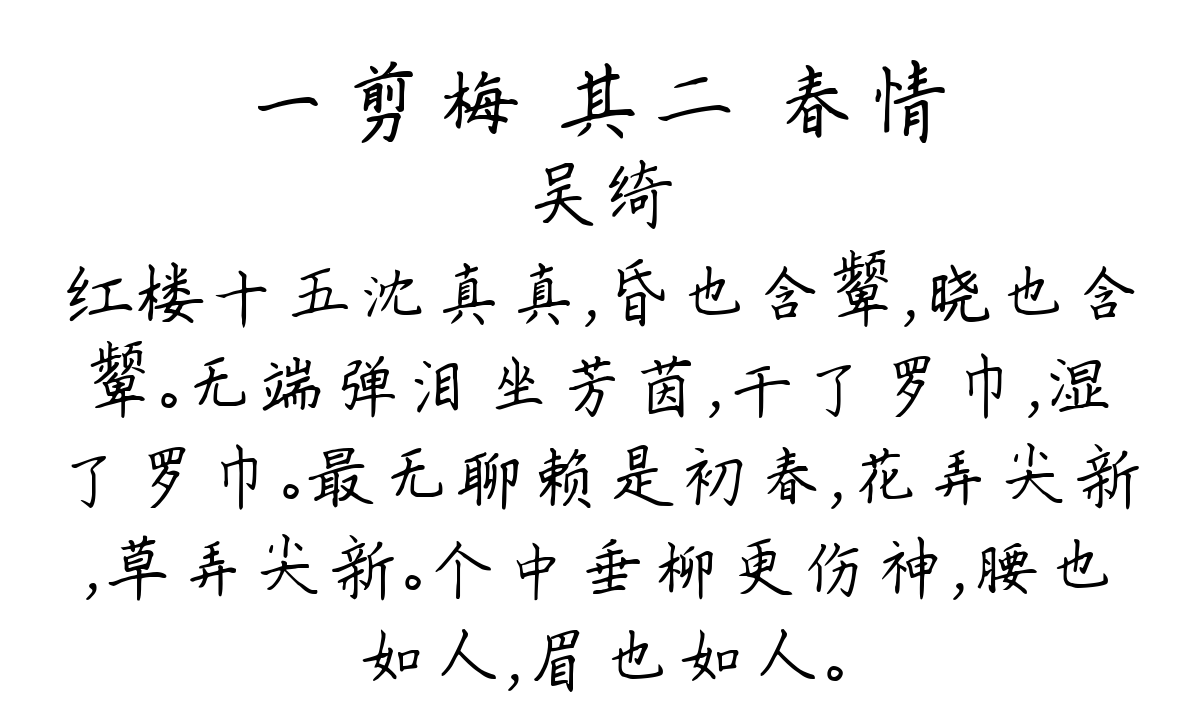 一剪梅 其二 春情
吴绮
红楼十五沈真真,昏也含颦,晓也含
颦。无端弹泪坐芳茵,干了罗巾,湿
了罗巾。最无聊赖是初春,花弄尖新
,草弄尖新。个中垂柳更伤神,腰也
如人,眉也如人。